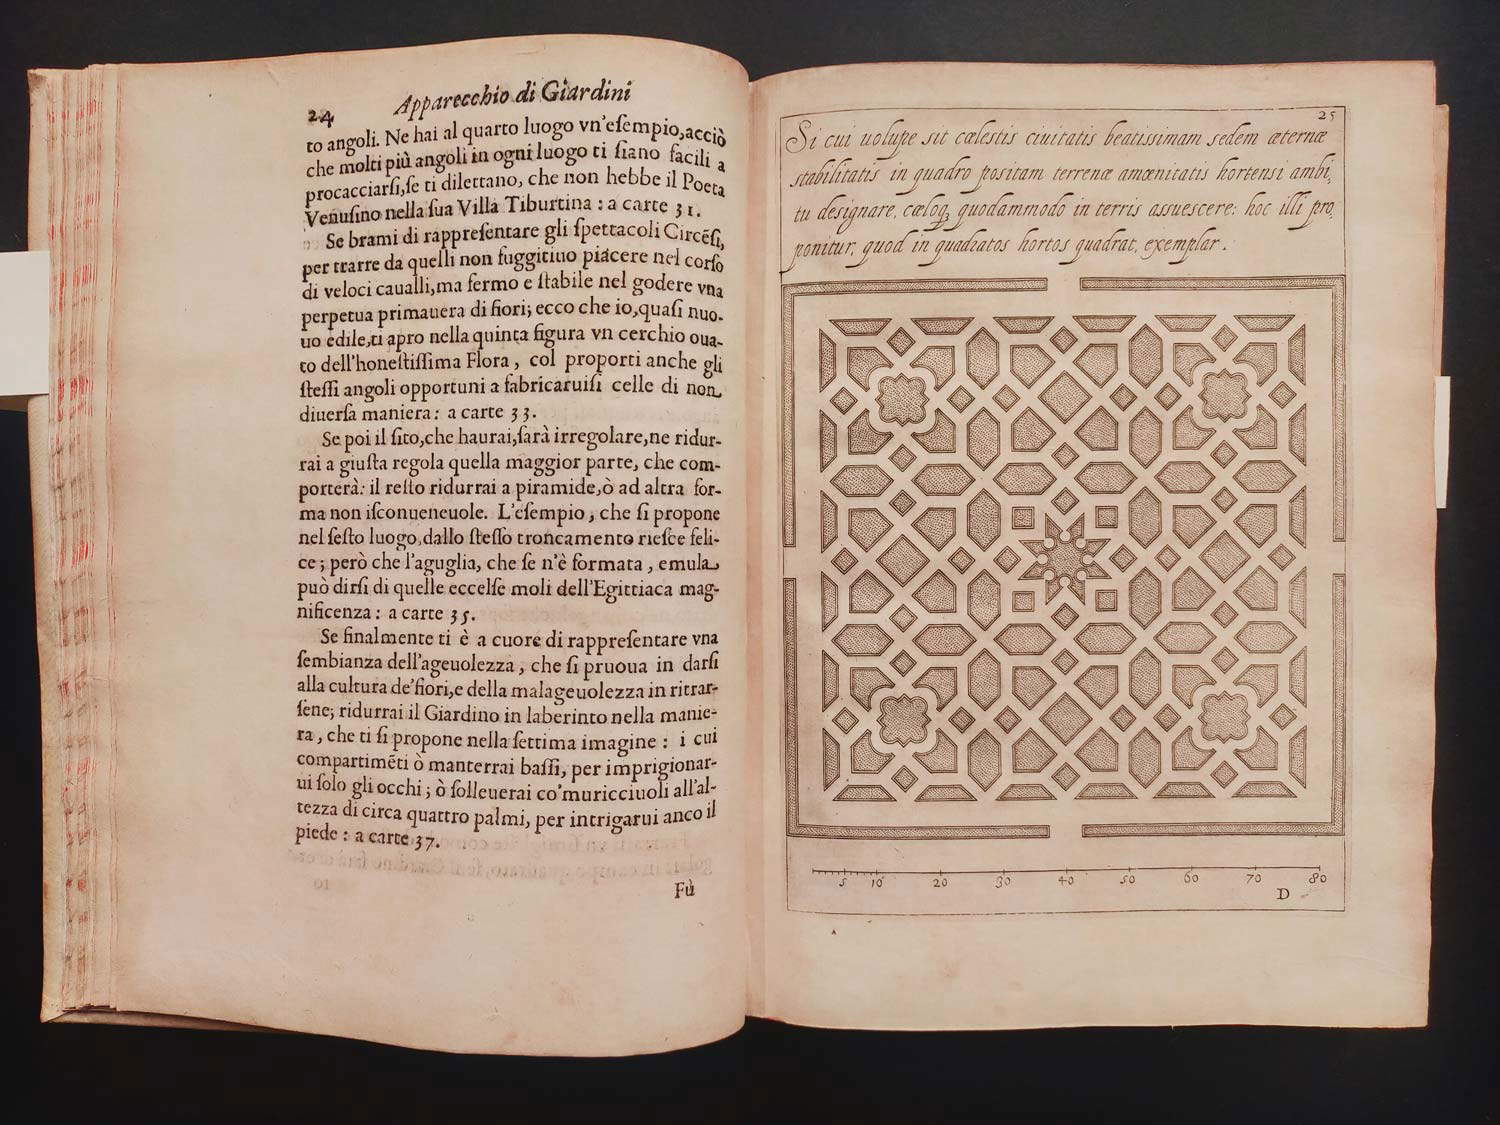 24
Apparecchio di Giardini
to angoli. Ne hai al quarto luogo vn'eſempio, acciò
che molti più angoli in ogni luogo ti ſiano facili a
procacciarſi, ſe ti dilettano, che non hebbe il Poeta
Venuſino nella ſua Villa Tiburtina : a carte 31.
Se brami di rappreſentare gli ſpettacoli Circēſi,
per trarre da quelli non fuggitiuo piacere nel corſo
di veloci caualli, ma fermo e ſtabile nel godere vna
perpetua primauera di fiori; ecco che io, quaſi nuo-
uo edile, ti apro nella quinta figura vn cerchio oua-
to dell'honeſtiſſima Flora, col proporti anche gli
ſteſſi angoli opportuni a fabricaruiſi celle di non
diuerſa maniera: a carte 33.
Se poi il ſito, che haurai, ſarà irregolare, ne ridur-
rai a giuſta regola quella maggior parte, che com-
porterà: il reſto ridurrai a piramide, ò ad altra for-
ma non iſconueneuole. L'eſempio, che ſi propone
nel ſeſto luogo, dallo ſteſſo troncamento rieſce feli-
ce; però che l'aguglia, che ſe n'è formata, emula
può dirſi di quelle eccelſe moli dell'Egittiaca mag-
nificenza: a carte 35.
Se finalmente ti è a cuore di rappreſentare vna
ſembianza dell'ageuolezza, che ſi pruoua in darſi
alla cultura de'fiori, e della malageuolezza in ritrar-
ſene; ridurrai il Giardino in laberinto nella manie-
ra, che ti ſi propone nella ſettima imagine : i cui
compartimēti ò manterrai baſſi, per imprigionar-
ui ſolo gli occhi; ò ſolleuerai co'muricciuoli all'al-
tezza di circa quattro palmi, per intrigarui anco il
piede : a carte 37.
Fù
25
Si cui uolupe sit cælestis ciuitatis beatissimam sedem æternæ
stabilitatis in quadro positam terrenæ amænitatis hortensi ambi,
tu designare, cæloq; quodammodo in terris assuescere: hoc illi pro,
ponitur, quod in quadratos hortos quadrat, exemplar.
5 10 20 30 40 50 60 70 80
D